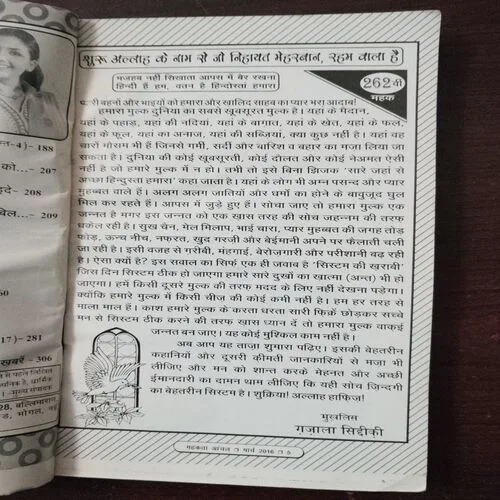 न्त-4)- 188
को...- 207
इदे- 208
बेल...- 209
60
17)- 281
खबरें - 306
28, बल्लिमारान
ड, भोगल, नई
शुरू अल्लाह के नाम से जो निहायत मेहरबान, रहम वाला है
मजहब नहीं सिखाता आपस में बैर रखना
हिन्दी हैं हम, वतन है हिन्दोस्तां हमारा
262वीं
महक
री बहनों और भाइयों को हमारा और खालिद साहब का प्यार भरा आदाब!
हमारा मुल्क दुनिया का सबसे खूबसूरत मुल्क है। यहां के मैदान,
यहां के पहाड़, यहां की नदियां, यहां के बागात, यहां के खेत, यहां के फल,
यहां के फूल, यहां का अनाज, यहां की सब्जियां, क्या कुछ नहीं है। यहां वह
चारों मौसम भी हैं जिनसे गर्मी, सर्दी और बारिश व बहार का मजा लिया जा
सकता है। दुनिया की कोई खूबसूरती, कोई दौलत और कोई नेअमत ऐसी
नहीं है जो हमारे मुल्क में न हो। तभी तो इसे बिना झिजक 'सारे जहां से
अच्छा हिन्दुस्तां हमारा' कहा जाता है। यहां के लोग भी अम्न पसन्द और प्यार
मुहब्बत वाले हैं। अलग अलग जातियों और धर्मों का होने के बावुजूद घुल
मिल कर रहते हैं। आपस में जुड़े हुए हैं। सोचा जाए तो हमारा मुल्क एक
जन्नत है मगर इस जन्नत को एक खास तरह की सोच जहन्नम की तरफ
धकेल रही है। सुख चैन, मेल मिलाप, भाई चारा, प्यार मुहब्बत की जगह तोड़
फोड़, ऊन्च नीच, नफरत, खुद गरजी और बेईमानी अपने पर फैलाती चली
जा रही है। इसी वजह से गरीबी, मंहगाई, बेरोजगारी और परीशानी बढ़ रही
है। ऐसा क्यों है? इस सवाल का सिर्फ एक ही जवाब है 'सिस्टम की खराबी'
जिस दिन सिस्टम ठीक हो जाएगा हमारे सारे दुखों का खात्मा (अन्त) भी हो
जाएगा। हमें किसी दूसरे मुल्क की तरफ मदद के लिए नहीं देखना पड़ेगा।
क्योंकि हमारे मुल्क में किसी चीज की कोई कमी नहीं है। हम हर तरह से
माला माल हैं। काश हमारे मुल्क के करता धरता सारी फिक्रें छोड़कर सच्चे
मन से सिस्टम ठीक करने की तरफ खास ध्यान दें तो हमारा मुल्क वाकई
जन्नत बन जाए। यह कोई मुश्किल काम नहीं है।
अब आप यह ताजा शुमारा पढ़िए। इसकी बेहतरीन
कहानियों और दूसरी कीमती जानकारियों से मजा भी
लीजिए और मन को शान्त करके मेहनत और अच्छी
ईमानदारी का दामन थाम लीजिए कि यही सोच जिन्दगी
का बेहतरीन सिस्टम है। शुक्रिया! अल्लाह हाफिज!
मुख्लिस
गजाला सिद्दीकी
महकता आंचल ❐ मार्च 2016 ❐ 5